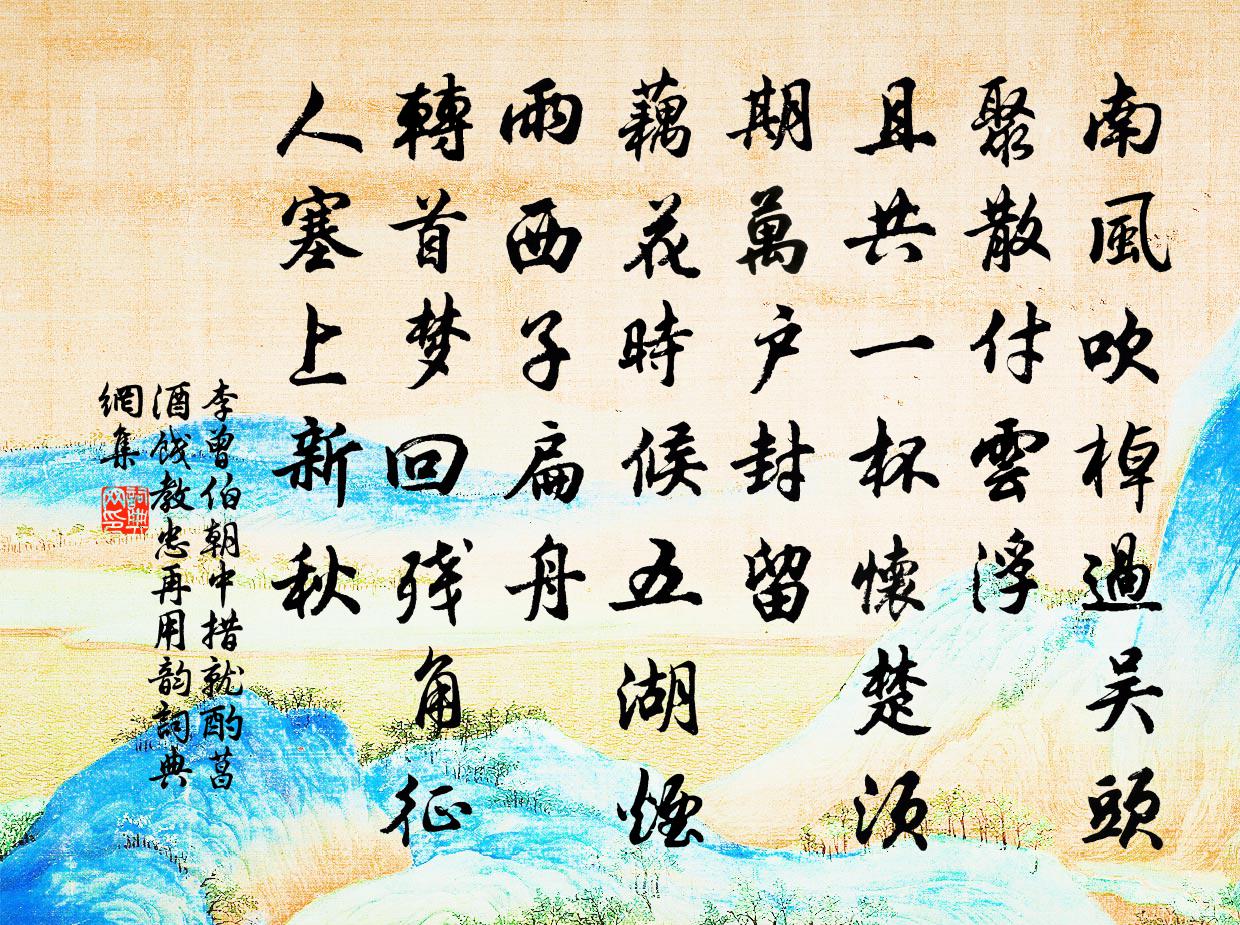 南風吹棹過吳頭
聚散付雲浮
且共一杯懷楚須
期萬户封留
藕花時候五湖煙
雨西子扁舟
轉首梦回残角征
人塞上新秋
李曾伯朝中措就酌菖
酒餞教忠再用韵詞典
網集
詞典
网印